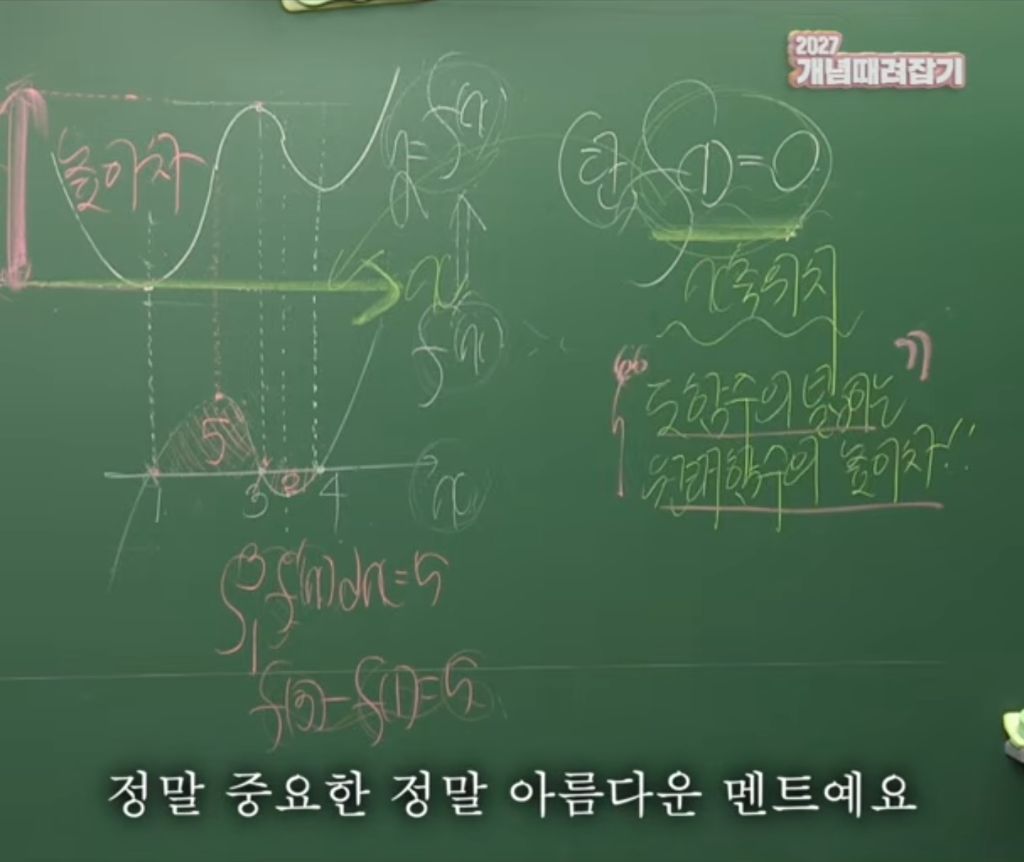 2027
개념때려잡기
높이차
y=f(x)
(단, f(1)=0)
x
x축 위치
f'(x)
기
도함수의 넓이는
원래함수의 높이차!!
5
2
1
3
4
x
∫₁³ f'(x)dx=5
f(3)-f(1)=5
정말 중요한 정말 아름다운 멘트예요